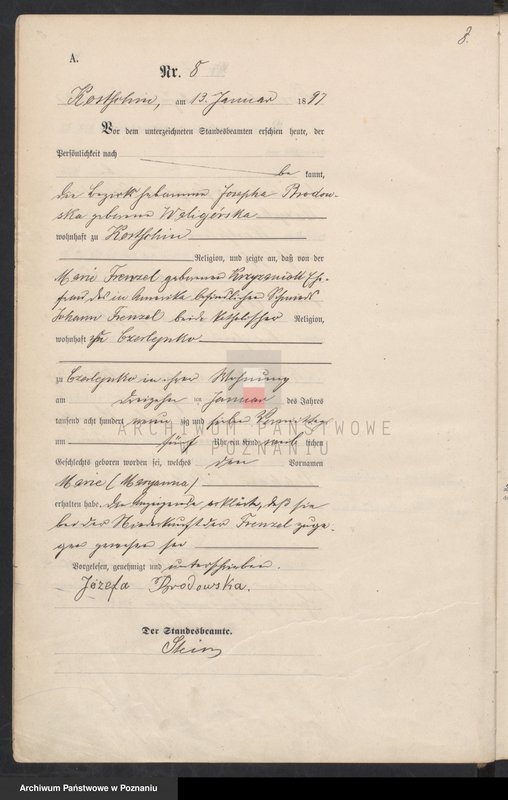 8.
A.
Nr. 8
Kostschin, am 13. Januar 1897
Vor dem unterzeichneten Standesbeamten erschien heute, der
Persönlichkeit nach
be kannt,
die Bezirkshebamme Josepha Brodow-
ska geborene Waligórska
wohnhaft zu Kostschin
Religion, und zeigte an, daß von der
Marie Frenzel geborenen Krzyzaniak Ehe-
frau des in Amerika befindlichen Schmied
Johann Frenzel beide katholischer Religion,
wohnhaft zu Czerlejnko
zu Czerlejnko in ihrer Wohnung
am dreizehn ten Januar des Jahres
tausend acht hundert neun zig und sieben Vormittags
um fünf Uhr ein Kind weib lichen
Geschlechts geboren worden sei, welches den Vornamen
Marie (Maryanna)
erhalten habe. Die Anzeigende erklärte, daß sie
bei der Niederkunft der Frenzel zuge-
gen gewesen sei
Vorgelesen, genehmigt und unterschrieben.
Józefa Brodowska.
Der Standesbeamte.
ARCHIWUM PAŃSTWOWE
W POZNANIU
Archiwum Państwowe w Poznaniu